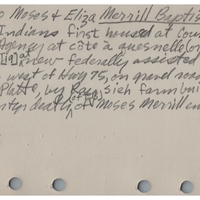 o Moses & Eliza Merrill Baptis
Indians first housed at Cou
Agency at côte à quesnelle (or
[?] at new federally assisted
west of Hwy 75, on gravel road
Platte, by farm buil
after death of Moses Merrill